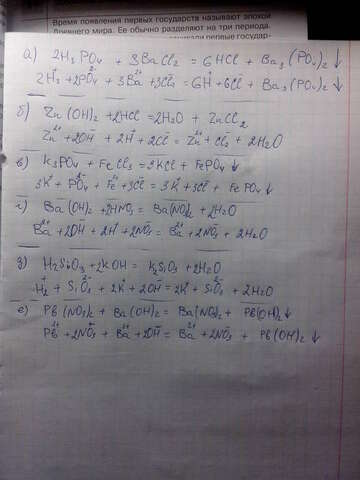 Время появления первых государств называют эпохой
Древнего мира. Ее обычно разделяют на три периода.
первые государ-
а) 2H₃PO₄ + 3BaCl₂ = 6HCl + Ba₃(PO₄)₂↓
2H₃⁺ + 2PO₄ + 3Ba²⁺ + 3Cl₂ = 6H⁺ + 6Cl⁻ + Ba₃(PO₄)₂↓
б) Zn(OH)₂ + 2HCl = 2H₂O + ZnCl₂
Zn²⁺ + 2OH⁻ + 2H⁺ + 2Cl⁻ = Zn²⁺ + Cl₂⁻ + 2H₂O
в) K₃PO₄ + FeCl₃ = 3KCl + FePO₄↓
3K⁺ + PO₄ + Fe + 3Cl⁻ = 3K⁺ + 3Cl⁻ + FePO₄↓
г) Ba(OH)₂ + 2HNO₃ = Ba(NO₃)₂ + 2H₂O
Ba²⁺ + 2OH⁻ + 2H⁺ + 2NO₃⁻ = Ba²⁺ + 2NO₃⁻ + 2H₂O
д) H₂SiO₃ + 2KOH = K₂SiO₃ + 2H₂O
H₂⁺ + SiO₃²⁻ + 2K⁺ + 2OH⁻ = 2K⁺ + SiO₃²⁻ + 2H₂O
е) Pb(NO₃)₂ + Ba(OH)₂ = Ba(NO₃)₂ + Pb(OH)₂↓
Pb²⁺ + 2NO₃⁻ + Ba²⁺ + 2OH⁻ = Ba²⁺ + 2NO₃⁻ + Pb(OH)₂↓